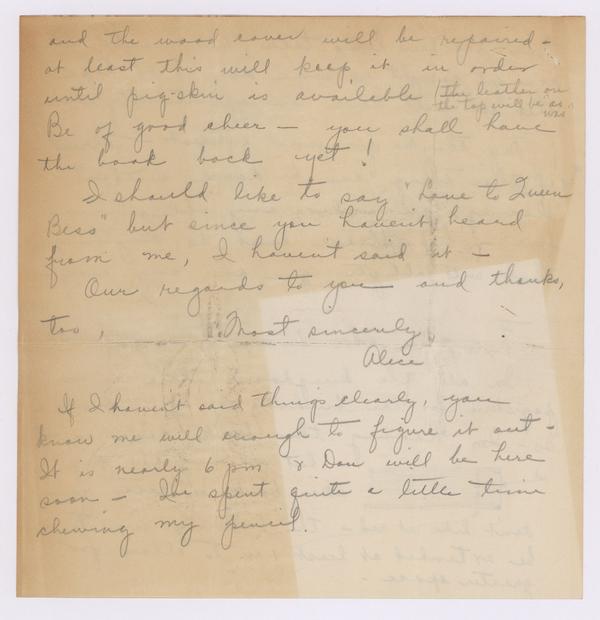 and the wood cover will be repaired -
at least this will keep it in order
until pig-skin is available / the leather on
the top will be as
was
Be of good cheer - you shall have
the book back yet!
I should like to say "Love to Queen
Bess" but since you haven't heard
from me, I haven't said it -
Our regards to you and thanks,
too, Most sincerely
Alice
If I haven't said things clearly, you
know me well enough to figure it out -
It is nearly 6 pm & Don will be here
soon - I've spent quite a little time
chewing my pencil.